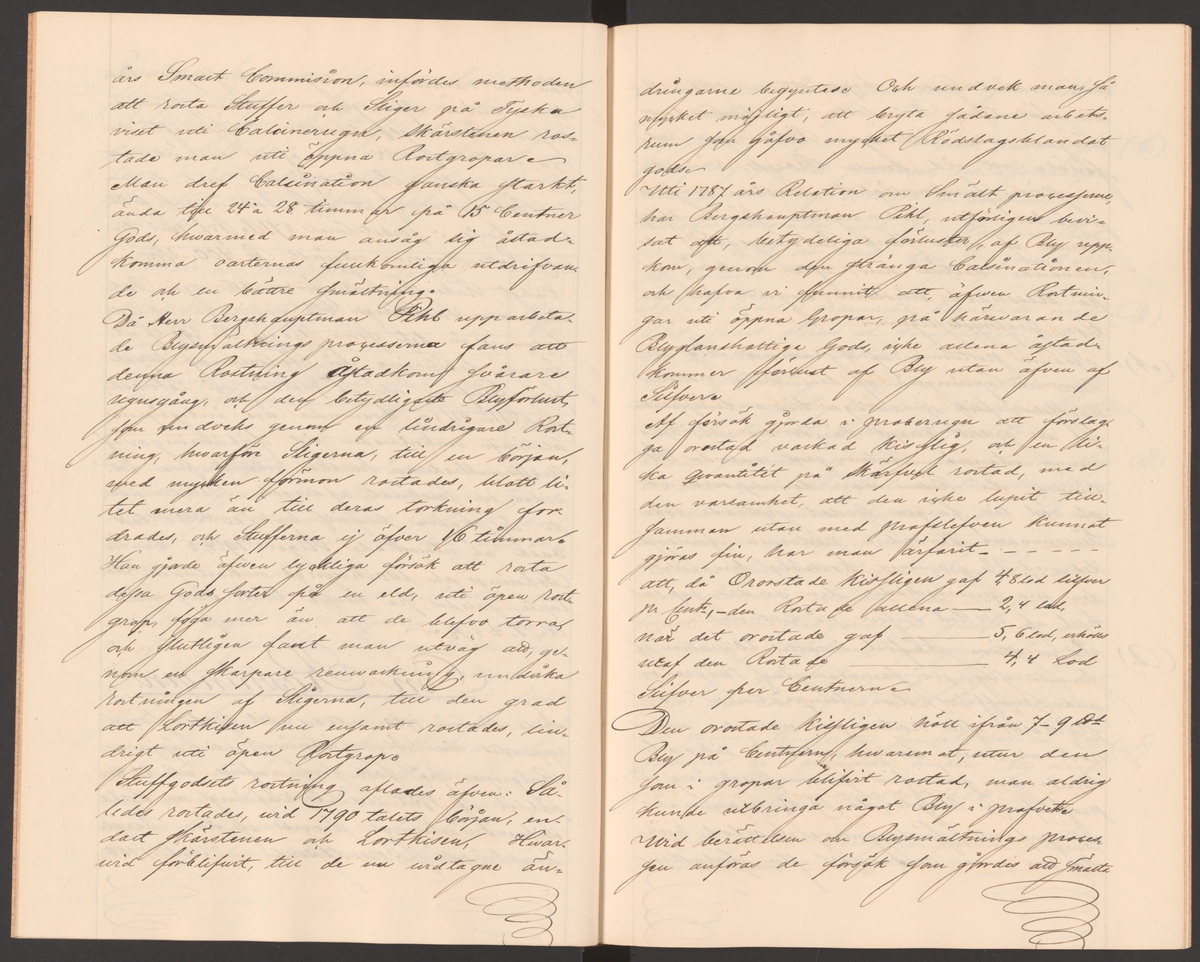 års Smält Commision, infördes methoden
att rosta Stuffer och Sliger på Tyska
viset uti Calcinerugn, Skärstenen ros-
tade man uti öppna Rostgropar.
Man dref Calsination ganska starkt,
ända till 24 à 28 timmar på 15 Centner
Gods, hwarmed man ansåg sig åstad-
komma arternas fullkomliga utdrifvan-
de och en bättre smältning.
Då Herr Bergshauptman Pihl upparbeta-
de Blysmältnings processerna fans att
denna Rostning åstadkom svårare
ugnsgång, och den betydligaste Blyförlust,
som undveks genom en lindrigare Rost-
ning, hwarför Sligerna, till en början,
med mycken förmon rostades, blott li-
tet mera än till deras torkning for-
drades, och Stufferna ej öfver 16 timmar.
Han gjorde äfwen lyckliga försök att rosta
dessa Gods sorter på en eld, uti öpen rost-
grop, föga mer än, att de blefvo torra,
och slutligen fant man utväg att, ge-
nom en skarpare renvaskning, undvika
rostningen af Sligerna, till den grad
att Lortkisen nu ensamt rostades, lin-
drigt uti öpen Rostgrop.
Stuffgodsets rostning aflades äfven: Så-
ledes rostades, wid 1790 talets början, en-
dast Skärstenen och Lortkisen, Hwar-
wid förblifvit, till de nu widtagne än-
dringarne begyntes. Och undvek man, så
mycket möjligt, att bryta sådane arbets-
rum som gåfvo mycket Rödslagsblandat
gods.
Uti 1787 års Relation om Smält processerne,
har Bergshauptman Pihl, utförligen bevi-
sat att, betydeliga förluster, af Bly upp-
kom, genom den stränga Calsinationen,
och hafva vi funnit att, äfven Rostnin-
gar uti öppna Gropar, på härvarande
Blyglanshaltiga Gods, icke allena åstad-
kommer förlust af Bly utan äfven af
Silfver.
Af försök gjorda i proberugn att förslag-
ga orostad vaskad kisslig, och en li-
ka qvantitet på Skärfvel rostad, med
den varsamhet, att den icke lupit till-
samman utan med profslefven kunnat
göras fin, har man ärfarit - - - - -
att, då Ororstade Kissligen gaf 4 8 lod silfver
pr Cent, - den Rostade allena — 2,4 lod,
när det orostade gaf — 5,6 lod, erhölls
utaf den Rostade — 4,4 Lod
Silfver per Centnern.
Den orostade kissligen höll ifrån 7-9
Bly på Centnern, hwaremot, utur den
som i gropar blifvit rostad, man aldrig
kunde utbringa något Bly i profvet.
Wid berättelsen om Blysmältnings proces-
sen anföras de försök som gjordes att smälta